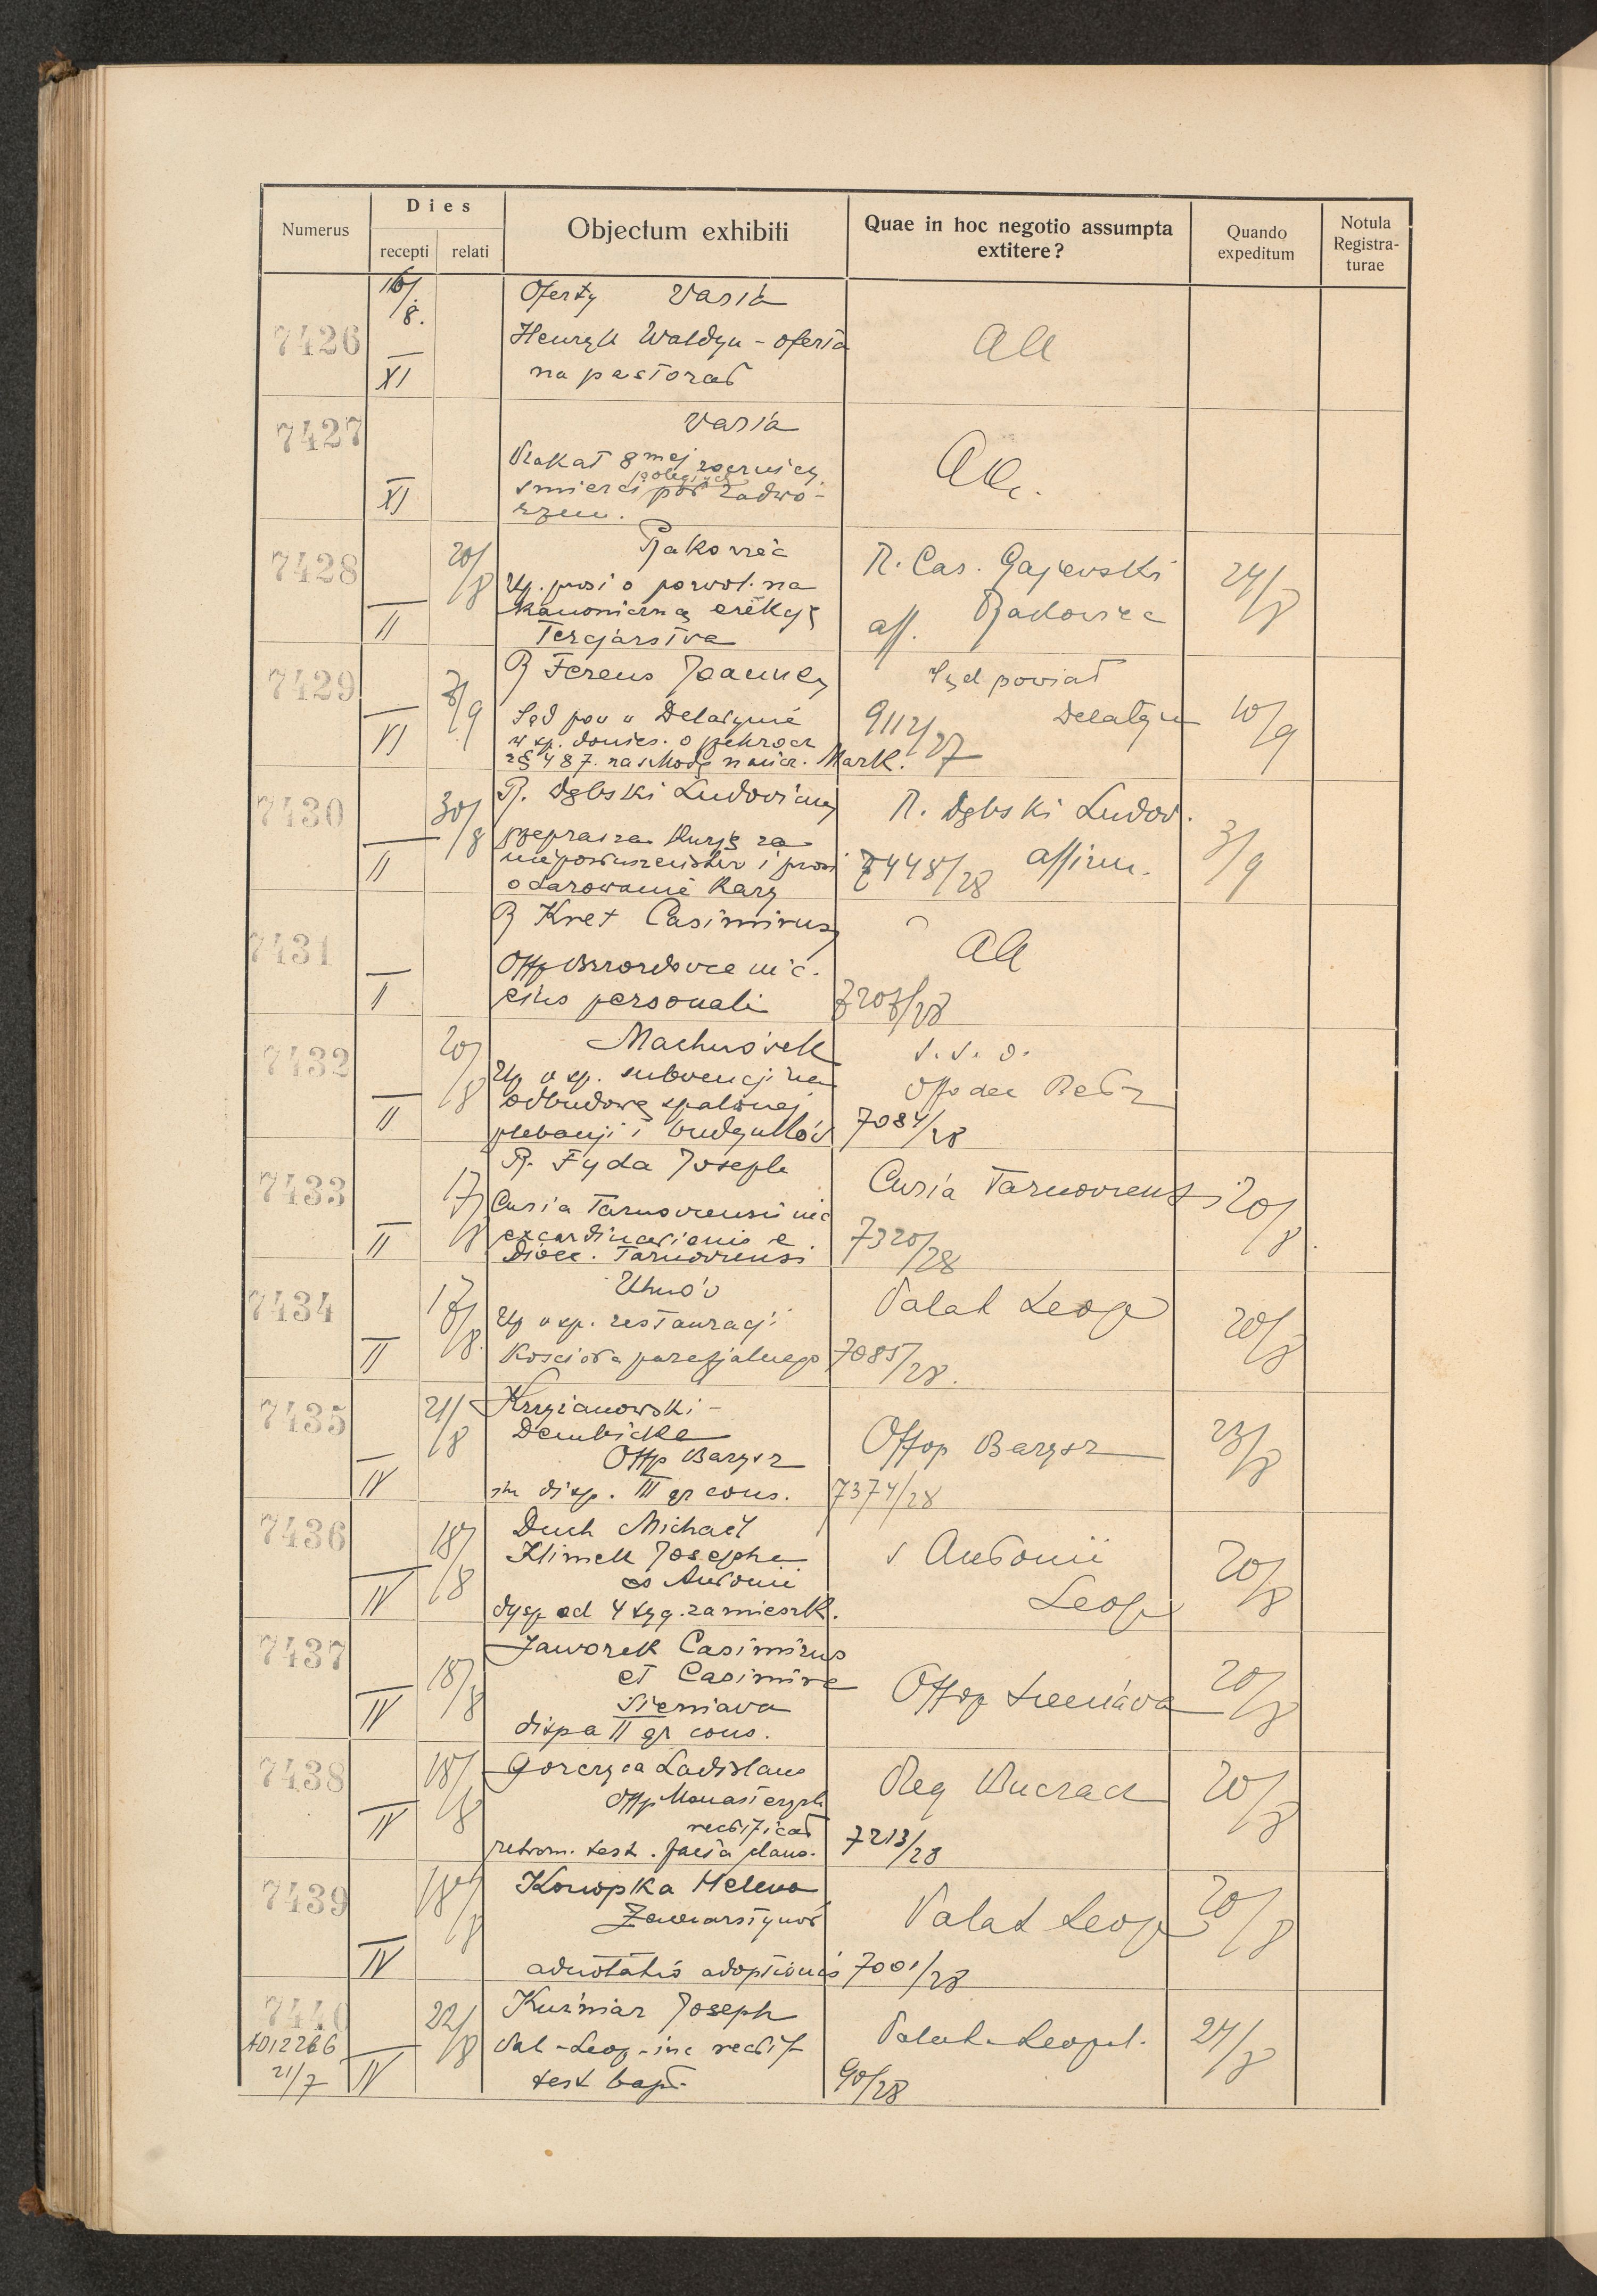 Numerus
Dies
recepti relati
Objectum exhibiti
Quae in hoc negotio assumpta
extitere?
Quando
expeditum
Notula
Registra-
turae
7426
16/8.
XI
Oferty Varia
Henryk Waldyn - oferta
na pastorał
aa
7427
XI
Varia
Plakat 8mej rocznicy
śmierci poległych pod Zadwó-
rzem.
aa.
7428
20/8
II
Rakowiec
Up. prosi o pozwol. na
kanoniczną erekcję
Tercjarstwa
R. Cas. Gajewski
aff. Rakowiec
24/8
7429
7/9
VI
R Ferens Joannes
Sąd pow w Delatynie
w sp. donies. o przekrocz
z § 487. na szkodę naucz. Mark.
Sąd powiat
Delatyn
9112/27
10/9
7430
30/8
II
R. Dębski Ludovicus
przeprasza Kurję za
nieposłuszeństwo i prosi
o darowanie kary
R. Dębski Ludov.
7448/28 affirm.
3/9
7431
II
R Kret Casimirus
Offp in c.
eius personali
aa
7207/28
7432
20/8
II
Machnówek
Up w sp. subwencji na
odbudowę spalonej
plebanji i budynków
s. s. o.
Off dec Bełz
7084/28
7433
17/8
II
R. Fyda Joseph
Curia Tarnoviensis in c
excardinationis e
Dioec. Tarnoviensi
Curia Tarnoviensis
7320/28
20/8.
7434
17/8.
II
Uhnów
Up w sp. restauracji
Kościoła parafjalnego
Palat Leop
7085/28.
20/8
7435
21/8
IV
Krzyżanowski -
Dembicka
Offp Barysz
in disp. III gr cons.
Offop Barysz
7374/28
23/8
7436
18/8
IV
Duch Michael
Klimek Josepha
ad s Antonii
dysp od 4 tyg. zamieszk.
s Antonii
Leop
20/8
7437
18/8
IV
Jaworek Casimirus
et Casimira
Sieniava
dispa II gr cons.
Offop Sieniava
20/8
7438
18/8
IV
Gorczyca Ladislaus
Offp Monasterzysk
rectificat
test. facta
Reg Buczacz
7213/28
20/8
7439
18/8
IV
Konopka Helena
Zamarstynów
adnotatio adoptionis
Palat Leop
7001/28
20/8
7440
AD12266
21/7
22/8
IV
Kuźniar Joseph
Pal - Leop - in c rectif
test bapt.
Palat. Leopol.
90/28
24/8